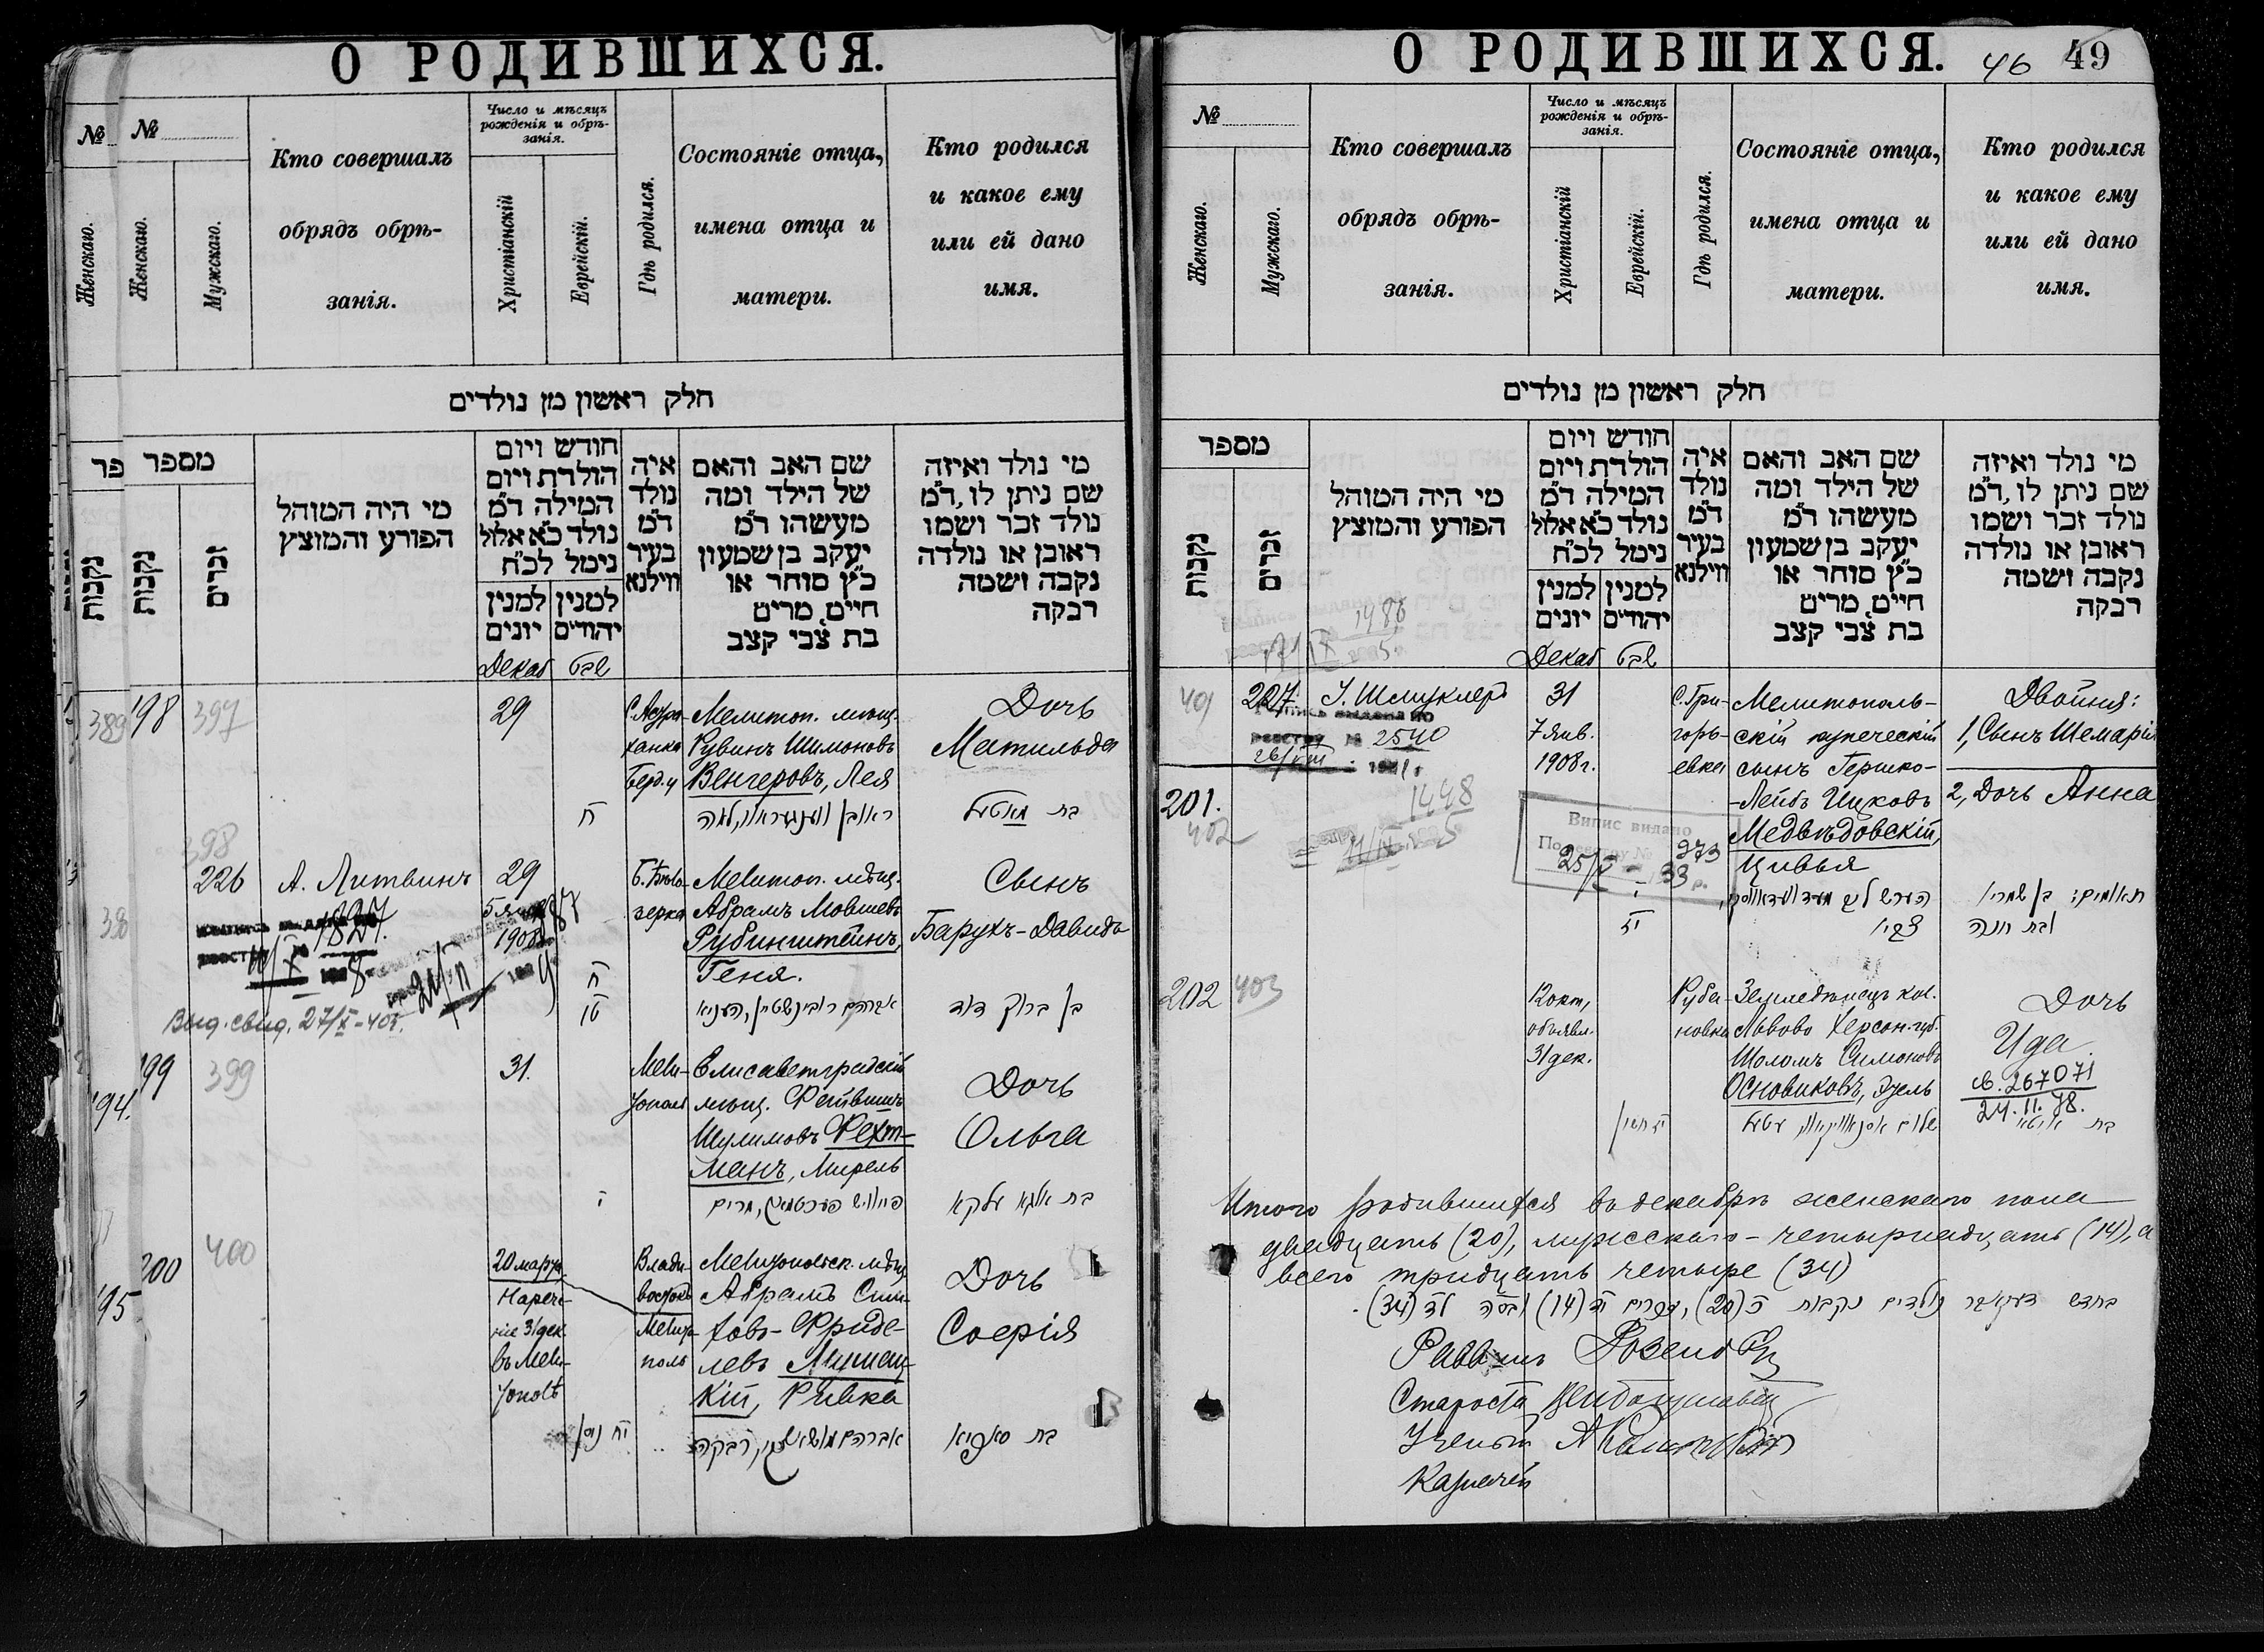 О РОДИВШИХСЯ.
№
№
Женскаго.
Женскаго.
Мужскаго.
Кто совершалъ
обрядъ обрѣ-
занія.
Число и мѣсяцъ
рожденія и обрѣ-
занія.
Христіанскій
Еврейскій.
Гдѣ родился.
Состояніе отца,
имена отца и
матери.
Кто родился
и какое ему
или ей дано
имя.
חלק ראשון מן נולדים
פר
מספר
נקבות
נקבות
זכרים
מי היה המוהל
הפורע והמוצץ
חודש ויום
הולדת ויום
המילה ד״מ
נולד כ״א אלול
נימל לכ״ח
למנין
יונים
למנין
יהודים
איה
נולד
ד״מ
בעיר
ווילנא
שם האב והאם
של הילד ומה
מעשהו ד״מ
יעקב בן שמעון
כ״ץ סוחר או
חיים, מרים
בת צבי קצב
מי נולד ואיזה
שם ניתן לו, ד״מ
נולד זכר ושמו
ראובן או נולדה
נקבה ושמה
רבקה
Декаб
טבת
389
198
397
29
С. Астра-
ханка
Берд. у
Мелитоп. мѣщ.
Рувинъ Шимоновъ
Венгеровъ, Лея
Дочь
Матильда
ח
בת
398
226
А. Литвинъ
29
1908
Мелитоп. мѣщ.
Абрамъ Мовшевъ
Рубинштейнъ,
Геня.
Сынъ
Барухъ-Давидъ
38
1827
ח
טו
אברהם רובינשטיין, העניא
בן ברוך דוד
Выд. свид. 27/X-40г.
194.
199
399
31.
Мели-
тополь
Елисаветградскій
мѣщ. Фейвишъ
Шулимовъ Фехт-
манъ, Мирель
Дочь
Ольга
י
בת
195
200
400
20 марта
Нарече-
ніе 31 дек.
въ Мели-
тополѣ
Влади-
востокъ
Мелито-
поль
Мелитопольск. мѣщ.
Абрамъ Сим-
ховъ-Фриде-
левъ
кій, Ривка
Дочь
Софія
יח ניסן
רבקה
בת סאפיא
О РОДИВШИХСЯ.
46
49
№
Женскаго.
Мужскаго.
Кто совершалъ
обрядъ обрѣ-
занія.
Число и мѣсяцъ
рожденія и обрѣ-
занія.
Христіанскій
Еврейскій.
Гдѣ родился.
Состояніе отца,
имена отца и
матери.
Кто родился
и какое ему
или ей дано
имя.
חלק ראשון מן נולדים
מספר
נקבות
זכרים
מי היה המוהל
הפורע והמוצץ
חודש ויום
הולדת ויום
המילה ד״מ
נולד כ״א אלול
נימל לכ״ח
למנין
יונים
למנין
יהודים
איה
נולד
ד״מ
בעיר
ווילנא
שם האב והאם
של הילד ומה
מעשהו ד״מ
יעקב בן שמעון
כ״ץ סוחר או
חיים, מרים
בת צבי קצב
מי נולד ואיזה
שם ניתן לו, ד״מ
נולד זכר ושמו
ראובן או נולדה
נקבה ושמה
רבקה
Декаб
טבת
401
227.
І. Шмуклеръ
31
7 янв.
1908 г.
С. Гри-
горь-
евка
Мелитополь-
скій купеческій
сынъ Гершко-
-Лейбъ Ицковъ
Медвѣдовскій,
Цивья
Двойня:
1, Сынъ Шемарія
2, Дочь Анна
реестру № 2540
26/VIII
201.
402
1448
Випис видано
По реєстру № 973
25/X - 33 р.
תאומים: בן שמריו
ובת חנה
202
403
12 окт,
объявл.
31 дек.
Руба-
новка
Земледѣлецъ кол.
Львово Херсон. губ.
Шоломъ Симоновъ
Основиковъ, Эдель
Дочь
Ида
св. 267071
24.11.78.
בת
Итого родившихся въ декабрѣ женскаго пола
двадцать (20), мужскаго - четырнадцать (14), а
всего тридцать четыре (34)
בחדש דעקאבר נולדים נקבות כ (20), זכרים יד (14) ובסה לד (34).
Раввинъ
Староста
Ученый
Казначей